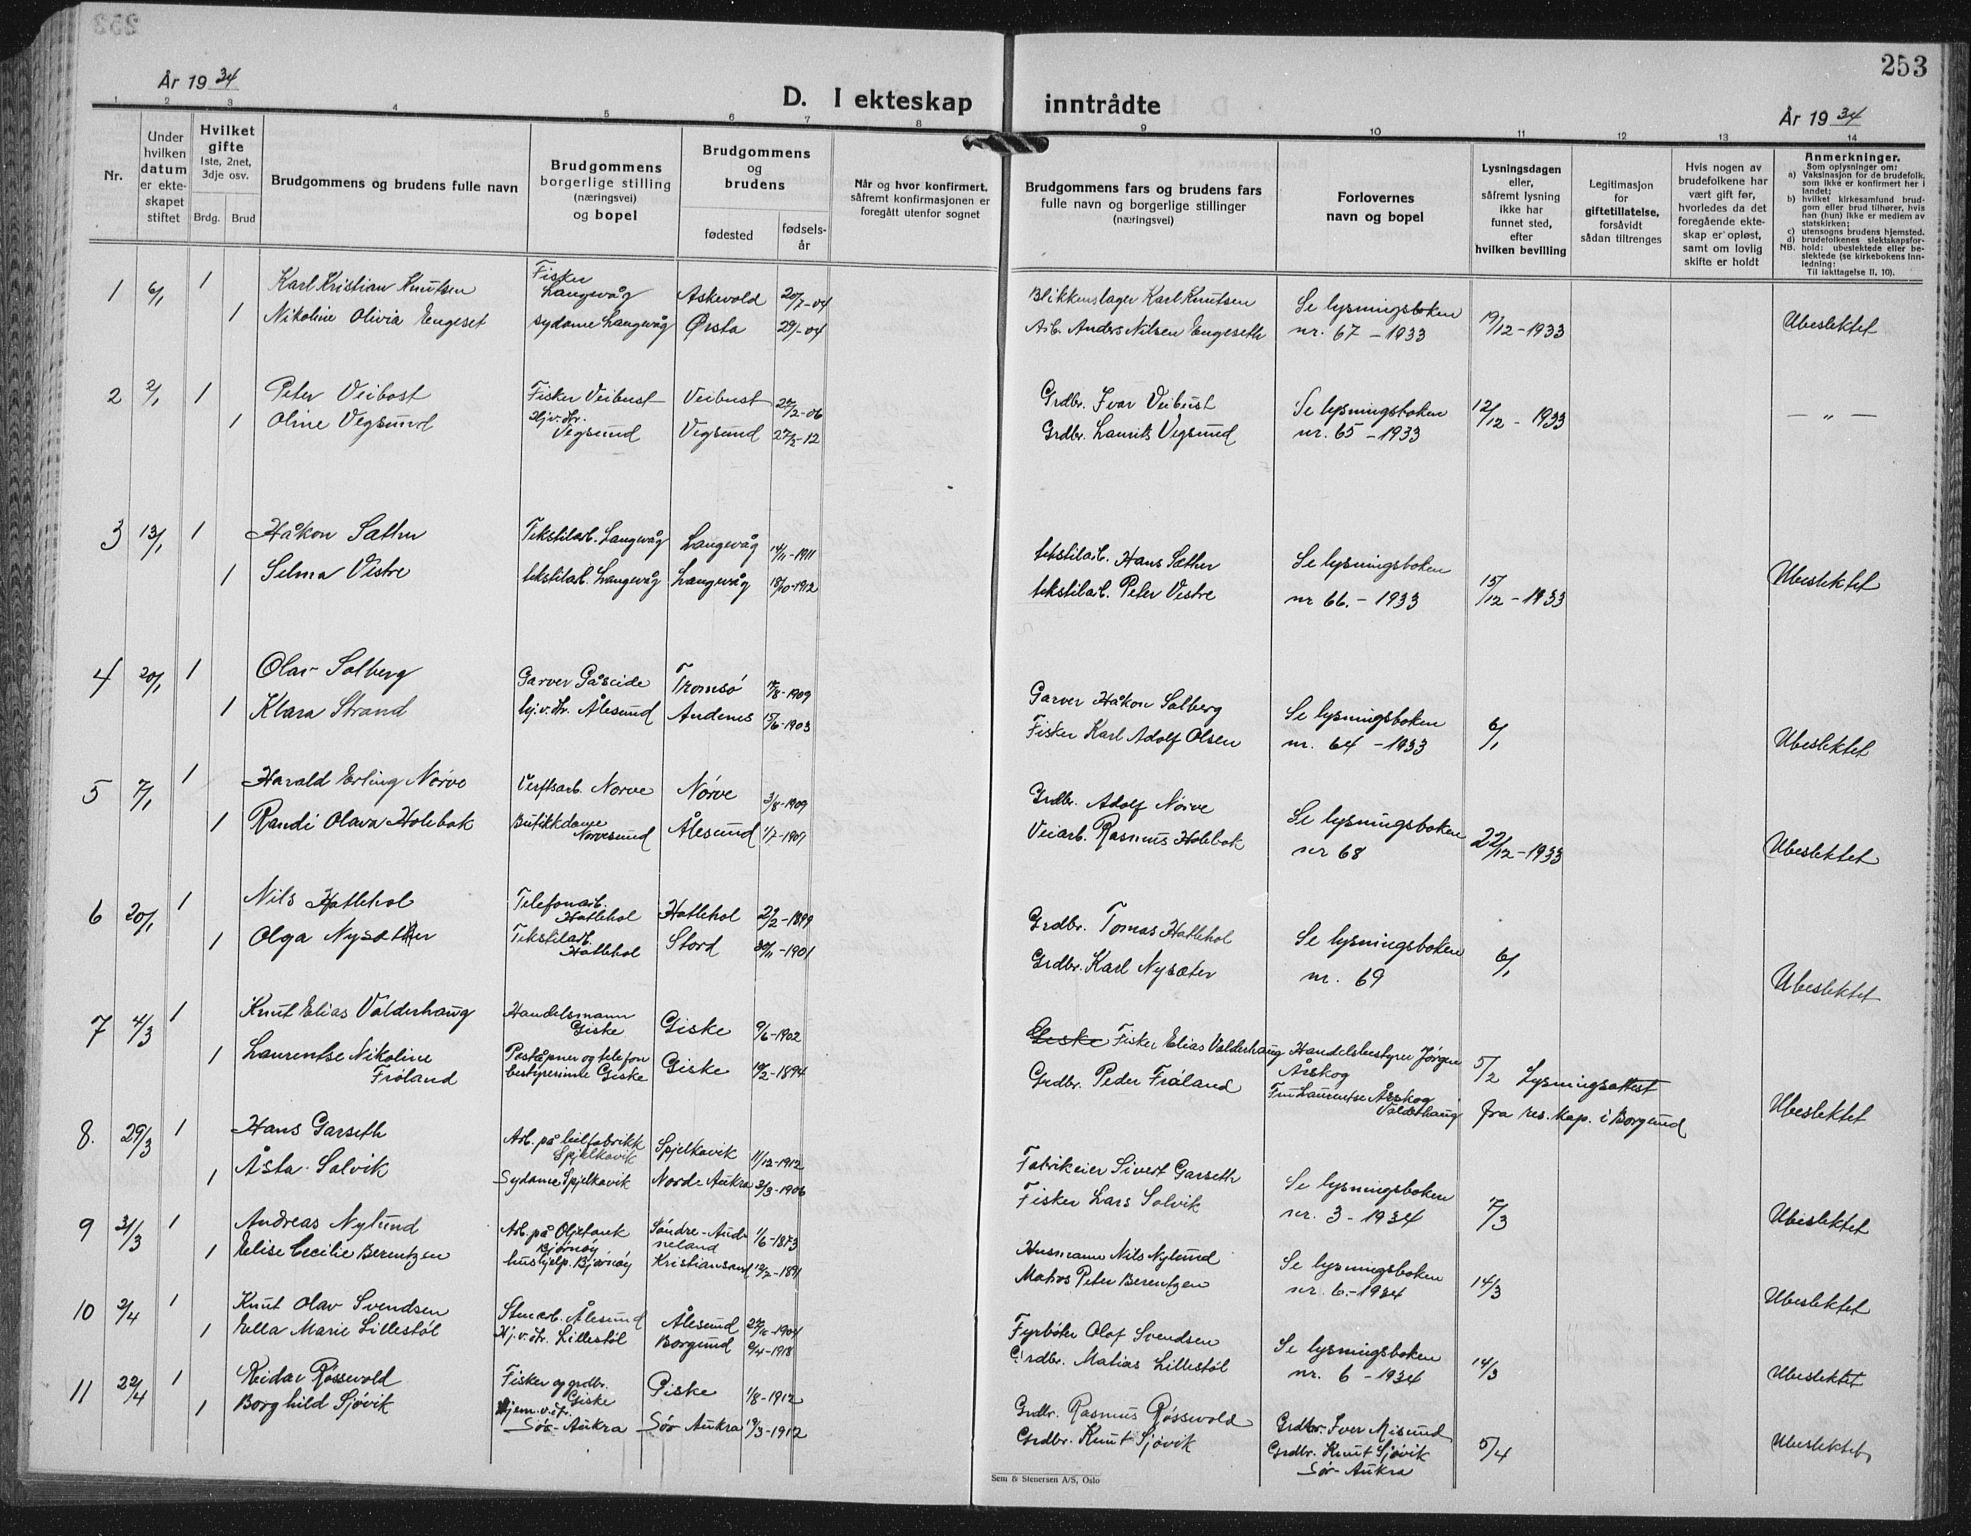 253
År 19 34
D. I ekteskap inntrådte
År 19 34
1 2 3 4 5 6 7 8 9 10 11 12 13 14
Nr.
Under hvilken datum er ekteskapet stiftet
Hvilket gifte
1ste, 2net, 3dje osv.
Brdg. Brud
Brudgommens og brudens fulle navn
Brudgommens borgerlige stilling (næringsvei) og bopel
Brudgommens og brudens
fødested
fødselsår
Når og hvor konfirmert, såfremt konfirmasjonen er foregått utenfor sognet
Brudgommens fars og brudens fars fulle navn og borgerlige stillinger (næringsvei)
Forlovernes navn og bopel
Lysningsdagen eller, såfremt lysning ikke har funnet sted, efter hvilken bevilling
Legitimasjon for giftetillatelse, forsåvidt sådan tiltrenges
Hvis nogen av brudefolkene har vært gift før, hvorledes da det foregående ekteskap er opløst, samt om lovlig skifte er holdt
Anmerkninger.
Som oplysninger om:
a) Vaksinasjon for de brudefolk, som ikke er konfirmert her i landet;
b) hvilket kirkesamfund brudgom eller brud tilhører, hvis han (hun) ikke er medlem av statskirken;
c) utensogns brudens hjemsted.
d) brudefolkenes slektskapsforhold: ubeslektede eller beslektede (se kirkebokens Innledning:
NB.
Til iakttagelse II, 10).
1 6/1 1 Karl Kristian Knutsen Fisker Langevåg Askevold 20/7-04 Blikkenslager Karl Knutsen Se lysningsboken 19/12-1933 Ubeslektet
1 Nikoline Olivia Engeset sydame Langevåg Ørsta 29/-04 Arb. Anders Nilsen Engeseth nr. 67 - 1933
2 2/1 1 Peter Veibost Fisker Veibust Veibust 27/2-06 Grdbr. Ivar Veibust Se lysningsboken 12/12 - 1933 — „ —
1 Oline Vegsund Hj.v.Hr. Vegsund Vegsund 27/2-12 Grdbr. Laurits Vegsund nr. 65 - 1933
3 13/1 1 Håkon Sæther Tekstilarb. Langevåg Langevåg 14/11-1911 tekstilarb. Hans Sæther Se lysningsboken 15/12 - 1933 Ubeslektet
1 Selma Vestre tekstilarb. Langevåg Langevåg 18/10-1912 tekstilarb. Peter Vestre nr 66. - 1933
4 20/1 1 Olav Solberg Garver Gåseide Tromsø /8-1909 Garver Håkon Solberg Se lysningsboken 6/1 Ubeslektet
1 Klara Strand hj.v.Hr. Ålesund Andenes 15/6-1903 Fisker Karl Adolf Olsen nr. 64 - 1933
5 7/1 1 Harald Erling Nørve Verftsarb. Norve Nørve 3/8-1909 Grdbr. Adolf Nørve Se lysningsboken 22/12-1933 Ubeslektet
1 Randi Olava Holebak Butikkdame Nørvesund Ålesund 1/7-1909 Veiarb. Rasmus Holebok nr 68
6 20/1 1 Nils Hatlehol Telefonarb. Hatlehol Hatlehol 21/2-1899 Grdbr. Tomas Hatlehol Se lysningsboken 6/1 Ubeslektet
1 Olga Nysæther Tekstilarb. Hatlehol Stord 30/11-1901 Grdbr. Karl Nysæter nr. 69
7 4/3 1 Knut Elias Valderhaug Handelsmann Giske Giske 9/6-1902 Giske Fisker Elias Valderhaug Handelsbestyrer Jørgen Årskog 5/2 Lysningsattest
1 Laurentse Nikoline Frøland Poståpner og telefonbestyrerinne Giske Giske 10/2-1894 Grdbr. Peder Frøland Fru Laurentse Årskog Valderhaug fra res. kap. i Borgund Ubeslektet
8. 29/3 1 Hans Garseth Arb. på leilfabrikk Spjelkavik Spjelkavik 11/12-1912 Fabrikeier Sivert Garseth Se lysningsboken 7/3 Ubeslektet
1 Åsta Solvik Sydame Spjelkavik Norde Aukra 3/3-1906 Fisker Lars Solvik nr. 3 - 1934
9 31/3 1 Andreas Nylund Arb. på Oljetank Bjørnøy Søndre-Audneland 1/6-1873 Husmann Nils Nylund Se lysningsboken 14/3 Ubeslektet
1 Elise Cecilie Berentzen hushjelp. Bjørnøy Kristiansand 12/2-1891 Matros Peter Berentzen nr. 6.-1934
10 2/4 1 Knut Olav Svendsen Stuearb. Ålesund Ålesund -1904 Fyrbøter Olaf Svendsen Se lysningsboken 14/3 Ubeslektet
1 Ella Marie Lillestøl Hj.v.Hr. Lillestøl Borgund 9/4-1918 Grdbr. Matias Lillestøl nr. 6 - 1934
11 22/4 1 Reidar Røssevold Fisker og grdbr. Giske Giske 1/8-1912 Grdbr. Rasmus Røssevold Grdbr. Iver Misund 5/4 Ubeslektet
1 Borghild Sjøvik Hjem.v.st. Sør-Aukra Sør Aukra 19/3-1912 Grdbr. Knut Sjøvik Grdbr. Knut Sjøvik Sør-Aukra
Sem & Stenersen A/S, Oslo